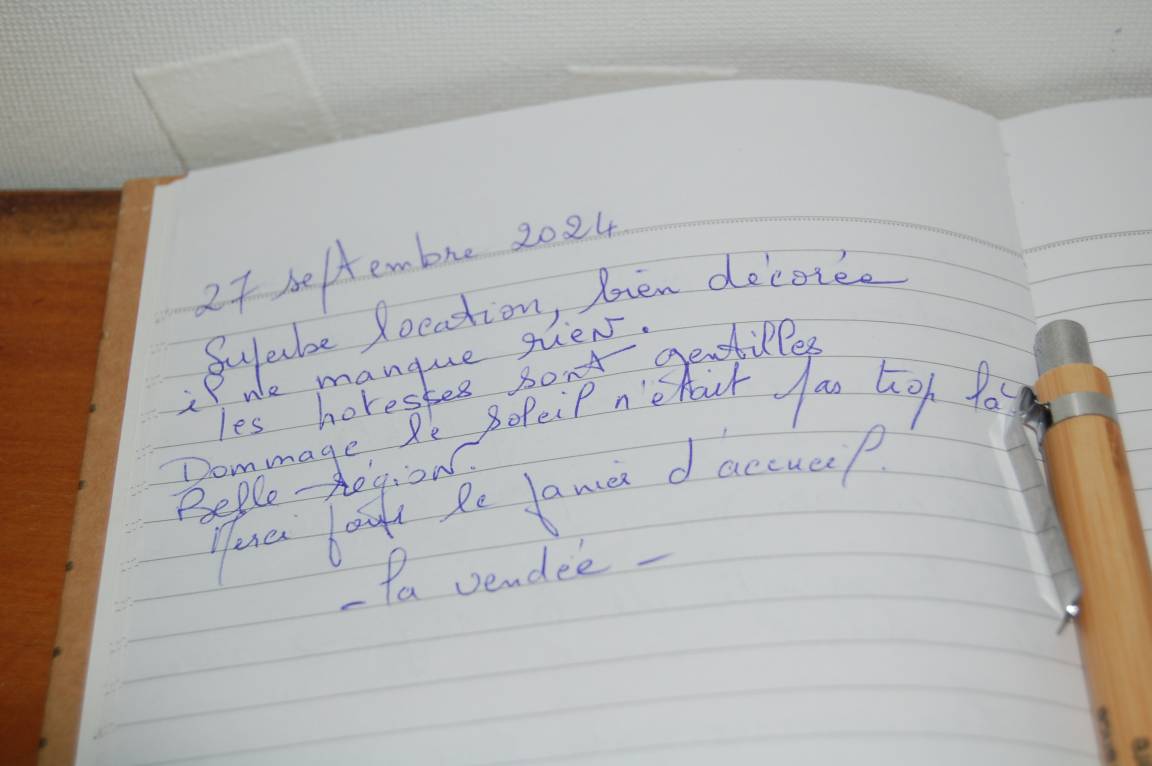 27 septembre 2024
Superbe location, bien décorée
il ne manque rien.
les hotesses sont gentilles
Dommage le soleil n'était pas trop là
Belle région.
Merci pour le panier d'accueil.
- la vendée -